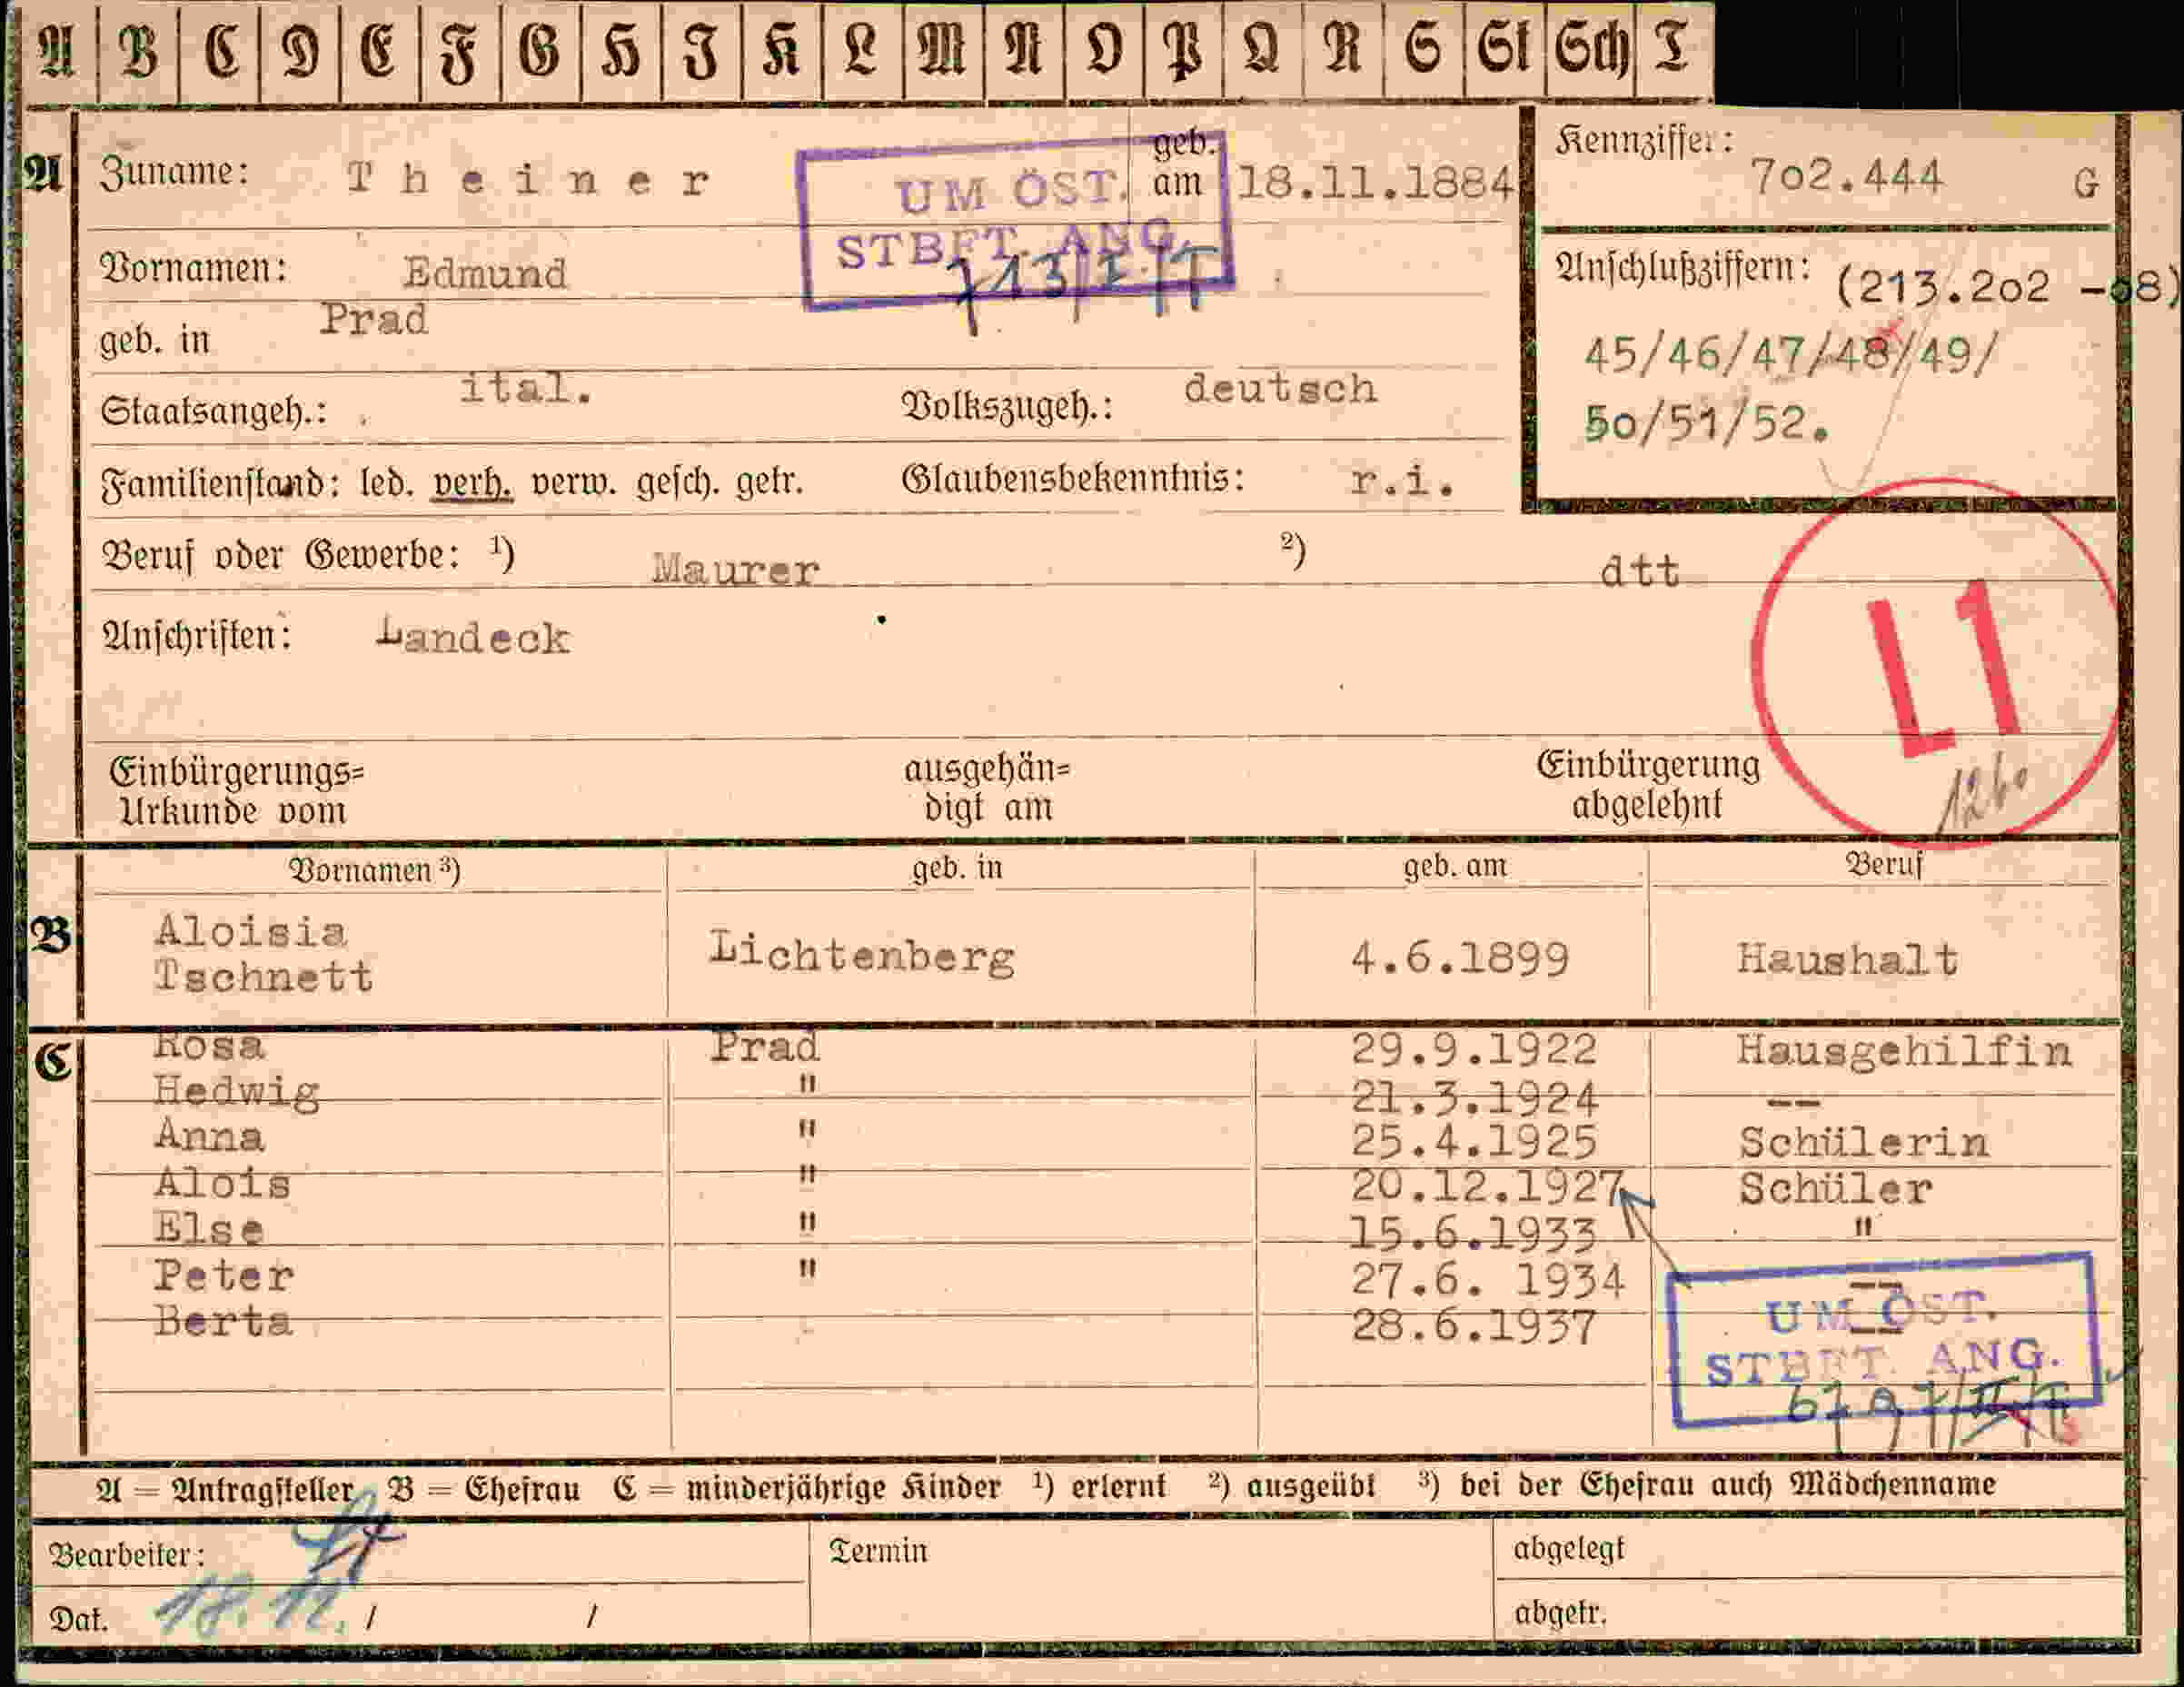 A B C D E F G H J K L M N O P Q R S St Sch T
A Zuname: Theiner geb. am 18.11.1884 Kennziffer: 702.444 G
UM ÖST.
STBFT. ANG.
Vornamen: Edmund
Anschlußziffern: (213.202 -08)
geb. in Prad
45/46/47/48/49/
Staatsangeh.: ital. Volkszugeh.: deutsch
50/51/52.
Familienstand: led. verh. verw. gesch. getr. Glaubensbekenntnis: r.i.
Beruf oder Gewerbe: ¹) Maurer ²) dtt
Anschriften: Landeck
L1
1260
Einbürgerungs= ausgehän= Einbürgerung
Urkunde vom digt am abgelehnt
Vornamen ³) geb. in geb. am Beruf
B Aloisia
Tschnett Lichtenberg 4.6.1899 Haushalt
C Rosa Prad 29.9.1922 Hausgehilfin
Hedwig " 21.3.1924 --
Anna " 25.4.1925 Schülerin
Alois " 20.12.1927 Schüler
Else " 15.6.1933 "
Peter " 27.6. 1934 --
Berta 28.6.1937 --
UM ÖST.
STBFT. ANG.
A = Antragsteller B = Ehefrau C = minderjährige Kinder ¹) erlernt ²) ausgeübt ³) bei der Ehefrau auch Mädchenname
Bearbeiter: Termin abgelegt
Dat. 18. 12. / / abgetr.